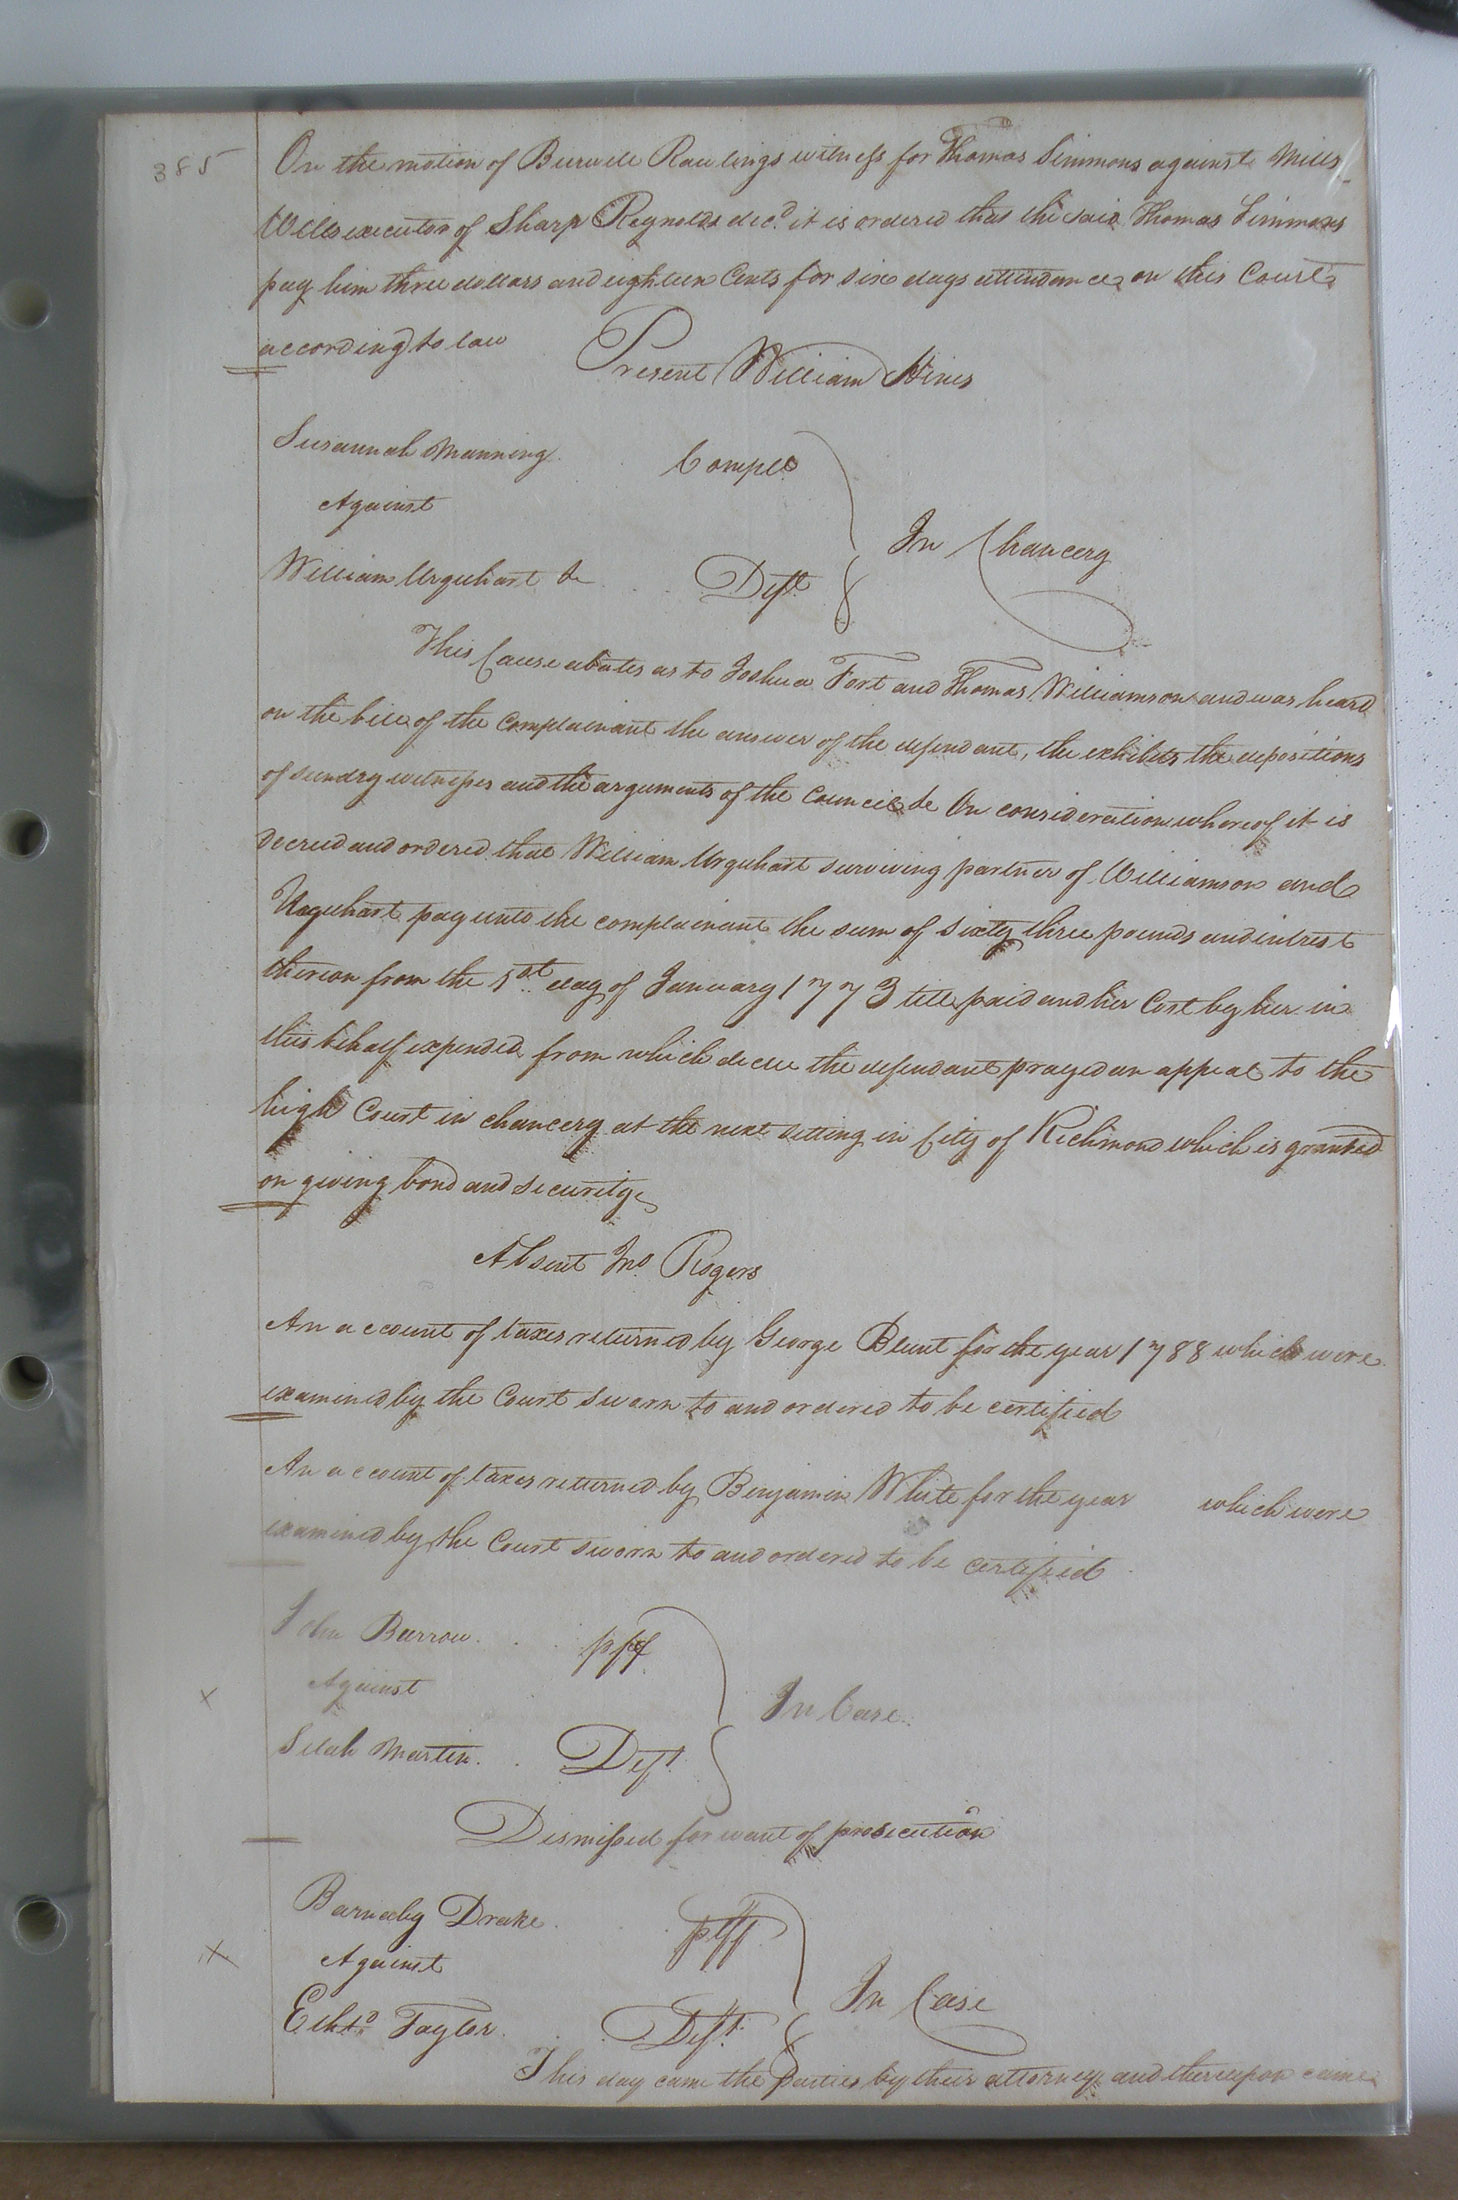 385
On the motion of Burwell Rawlings witness for Thomas Simmons against Mills
Wills executor of Sharp Reynolds decd. it is ordered that the said Thomas Simmons
pay him three dollars and eighteen Cents for six days attendance on this Court
according to law
Present William Hines
Susannah Manning Complt
Against
In Chancery
William Urquhart &c Deft.
This Cause abates as to Joshua Fort and Thomas Williamson and was heard
on the bill of the Complainant the answer of the defendant, the exhibits the depositions
of sundry witnesses and the arguments of the Council &c On consideration whereof it is
decreed and ordered that William Urquhart surviving partner of Williamson and
Urquhart pay unto the complainant the sum of sixty three pounds and intrest
thereon from the 1st day of January 1773 till paid and her Cost by her in
this behalf expended from which decree the defendant prayed an appeal to the
high Court in chancery at the next setting in City of Richmond which is granted
on giving bond and security
Absent Jno. Rogers
An account of taxes returned by George Blunt for the year 1788 which were
examined by the Court sworn to and ordered to be certified
An account of taxes returned by Benjamin White for the year which were
examined by the Court sworn to and ordered to be certified
John Barrow plff
Against
x In Case
Selah Martin Deft.
Dismissed for want of prosecution
Barnaby Drake plff
x Against
In Case
Ethd. Taylor Deft.
This day came the parties by their attorneys and thereupon came